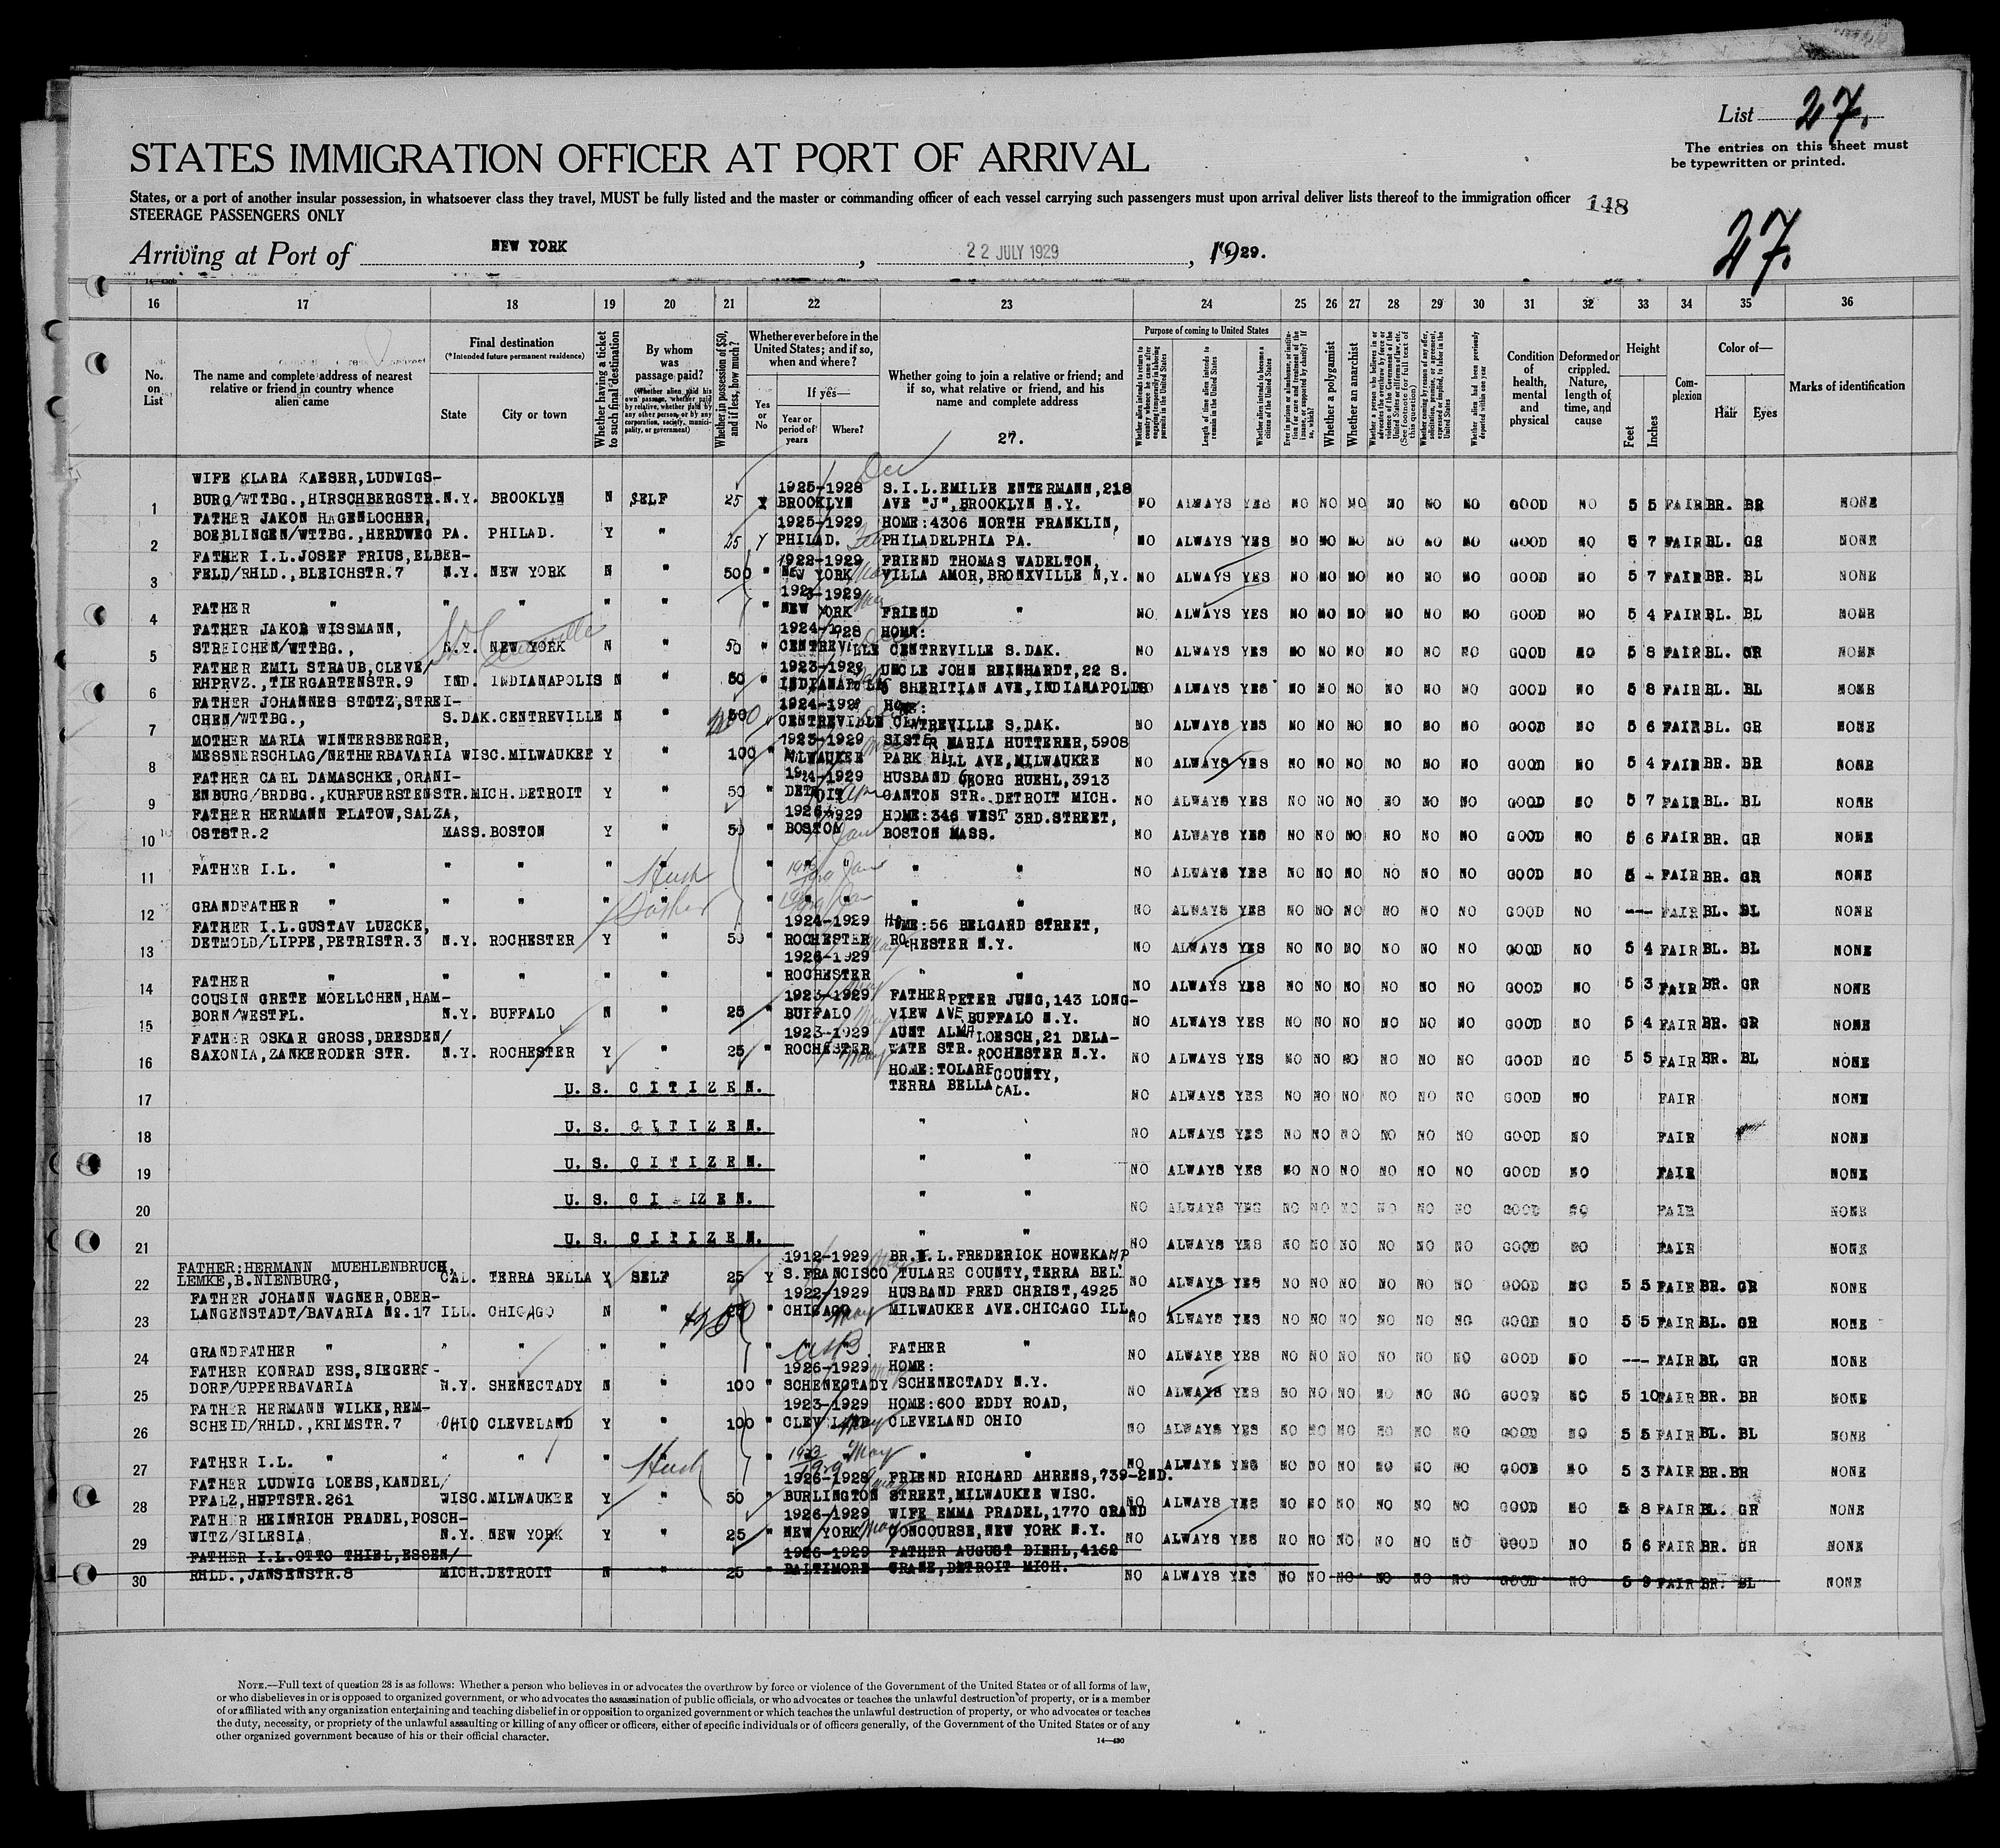 List 27.
The entries on this sheet must
be typewritten or printed.
STATES IMMIGRATION OFFICER AT PORT OF ARRIVAL
States, or a port of another insular possession, in whatsoever class they travel, MUST be fully listed and the master or commanding officer of each vessel carrying such passengers must upon arrival deliver lists thereof to the immigration officer 148
STEERAGE PASSENGERS ONLY
27.
Arriving at Port of NEW YORK, 22 JULY 1929, 1929.
16 17 18 19 20 21 22 23 24 25 26 27 28 29 30 31 32 33 34 35 36
No. on List
The name and complete address of nearest relative or friend in country whence alien came
Final destination
(*Intended future permanent residence)
State
City or town
Whether having a ticket to such final destination
By whom was passage paid?
(Whether alien paid his own passage, whether paid by relative, whether paid by any other person, or by any corporation, society, municipality, or government)
Whether in possession of $50, and if less, how much?
Whether ever before in the United States; and if so, when and where?
Yes or No
If yes—
Year or period of years
Where?
Whether going to join a relative or friend; and if so, what relative or friend, and his name and complete address
27.
Purpose of coming to United States
Length of time alien intends to remain in the United States
Whether alien intends to become a citizen of the United States
Whether a polygamist
Whether an anarchist
Condition of health, mental and physical
Deformed or crippled. Nature, length of time, and cause
Height
Feet
Inches
Complexion
Color of—
Hair
Eyes
Marks of identification
WIFE KLARA KAESER,LUDWIGS- 1925-1928 S.I.L.EMILIE ENTERMANN,218
1 BURG/WTTBG.,HIRSCHBERGSTR. N.Y. BROOKLYN N SELF 25 Y BROOKLYN AVE "J",BROOKLYN N.Y. NO ALWAYS YES NO NO NO NO NO NO GOOD NO 5 5 FAIR BR. BR NONE
FATHER JAKON HAGENLOCHER, 1925-1929 HOME:4306 NORTH FRANKLIN,
2 BOEBLINGEN/WTTBG.,HERDWEG PA. PHILAD. Y " 25 Y PHILAD. PHILADELPHIA PA. NO ALWAYS YES NO NO NO NO NO NO GOOD NO 5 7 FAIR BL. GR NONE
FATHER I.L.JOSEF FRIUS,ELBER- 1922-1929 FRIEND THOMAS WADELTON,
3 FELD/RHLD.,BLEICHSTR.7 N.Y. NEW YORK N " 500 " NEW YORK VILLA AMOR,BRONXVILLE N.Y. NO ALWAYS YES NO NO NO NO NO NO GOOD NO 5 7 FAIR BR. BL NONE
1923-1929
4 FATHER " " " " " " NEW YORK FRIEND " NO ALWAYS YES NO NO NO NO NO NO GOOD NO 5 4 FAIR BL. BL NONE
FATHER JAKOB WISSMANN, HOME:
5 STREICHEN/WTTBG., N.Y. NEW YORK N " 50 " CENTREVILLE CENTREVILLE S.DAK. NO ALWAYS YES NO NO NO NO NO NO GOOD NO 5 8 FAIR BL. GR NONE
FATHER EMIL STRAUB,CLEVE, UNCLE JOHN REINHARDT,22 S.
6 RHPRVZ.,TIERGARTENSTR.9 IND. INDIANAPOLIS N " 50 " INDIANAPOLIS SHERITIAN AVE,INDIANAPOLIS NO ALWAYS YES NO NO NO NO NO NO GOOD NO 5 8 FAIR BL. BL NONE
FATHER JOHANNES STOTZ,STREI- HOME:
7 CHEN/WTTBG., S.DAK. CENTREVILLE N " CENTREVILLE CENTREVILLE S.DAK. NO ALWAYS YES NO NO NO NO NO NO GOOD NO 5 6 FAIR BL. GR NONE
MOTHER MARIA WINTERSBERGER, 1923-1929 SISTER MARIA HUTTERER,5908
8 MESSNERSCHLAG/NETHERBAVARIA WISC. MILWAUKEE Y " 100 " MILWAUKEE PARK HILL AVE,MILWAUKEE NO ALWAYS YES NO NO NO NO NO NO GOOD NO 5 4 FAIR BR. BR NONE
FATHER CARL DAMASCHKE,ORANI- 1924-1929 HUSBAND GEORG RUEHL,3913
9 ENBURG/BRDBG.,KURFUERSTENSTR. MICH. DETROIT Y " 50 " DETROIT CANTON STR. DETROIT MICH. NO ALWAYS YES NO NO NO NO NO NO GOOD NO 5 7 FAIR BL. BL NONE
FATHER HERMANN PLATOW,SALZA, 1926-1929 HOME:346 WEST 3RD.STREET,
10 OSTSTR.2 MASS. BOSTON Y " 50 " BOSTON BOSTON MASS. NO ALWAYS YES NO NO NO NO NO NO GOOD NO 5 6 FAIR BR. GR NONE
11 FATHER I.L. " " " " " " " " " " NO ALWAYS YES NO NO NO NO NO NO GOOD NO 5 - FAIR BR. GR NONE
12 GRANDFATHER " " " " " " " " " " NO ALWAYS YES NO NO NO NO NO NO GOOD NO --- FAIR BL. BL NONE
FATHER I.L.GUSTAV LUECKE, 1924-1929 HOME:56 BELGARD STREET,
13 DETMOLD/LIPPE,PETRISTR.3 N.Y. ROCHESTER Y " 50 " ROCHESTER ROCHESTER N.Y. NO ALWAYS YES NO NO NO NO NO NO GOOD NO 5 4 FAIR BL. BL NONE
1926-1929
14 FATHER " " " " " " ROCHESTER " " NO ALWAYS YES NO NO NO NO NO NO GOOD NO 5 3 FAIR BR. GR NONE
COUSIN GRETE MOELLCHEN,HAM- 1923-1929 FATHER PETER JUNG,143 LONG-
15 BORN/WESTFL. N.Y. BUFFALO N " 25 " BUFFALO VIEW AVE BUFFALO N.Y. NO ALWAYS YES NO NO NO NO NO NO GOOD NO 5 4 FAIR BR. GR NONE
FATHER OSKAR GROSS,DRESDEN/ 1923-1929 AUNT ALMA LOESCH,21 DELA-
16 SAXONIA,ZANKERODER STR. N.Y. ROCHESTER Y " 25 " ROCHESTER WATE STR. ROCHESTER N.Y. NO ALWAYS YES NO NO NO NO NO NO GOOD NO 5 5 FAIR BR. BL NONE
HOME:TOLARE COUNTY,
17 U. S. CITIZEN. TERRA BELLA CAL. NO ALWAYS YES NO NO NO NO NO NO GOOD NO FAIR NONE
18 U. S. CITIZEN. " NO ALWAYS YES NO NO NO NO NO NO GOOD NO FAIR NONE
19 U. S. CITIZEN. " " NO ALWAYS YES NO NO NO NO NO NO GOOD NO FAIR NONE
20 U. S. CITIZEN. " " NO ALWAYS YES NO NO NO NO NO NO GOOD NO FAIR NONE
21 U. S. CITIZEN. " " NO ALWAYS YES NO NO NO NO NO NO GOOD NO FAIR NONE
FATHER:HERMANN MUEHLENBRUCH, 1912-1929 BR.I.L.FREDERICK HOWEKAMP
22 LEMKE,B.NIENBURG, CAL. TERRA BELLA Y SELF 25 Y S.FRANCISCO TULARE COUNTY,TERRA BEL. NO ALWAYS YES NO NO NO NO NO NO GOOD NO 5 5 FAIR BR. GR NONE
FATHER JOHANN WAGNER,OBER- 1922-1929 HUSBAND FRED CHRIST,4925
23 LANGENSTADT/BAVARIA No.17 ILL. CHICAGO N " " CHICAGO MILWAUKEE AVE.CHICAGO ILL. NO ALWAYS YES NO NO NO NO NO NO GOOD NO 5 5 FAIR BL. GR NONE
24 GRANDFATHER " " " " " " " FATHER " NO ALWAYS YES NO NO NO NO NO NO GOOD NO --- FAIR BL GR NONE
FATHER KONRAD ESS,SIEGERS- 1926-1929 HOME:
25 DORF/UPPERBAVARIA N.Y. SHENECTADY N " 100 " SCHENECTADY SCHENECTADY N.Y. NO ALWAYS YES NO NO NO NO NO NO GOOD NO 5 10 FAIR BR. BR NONE
FATHER HERMANN WILKE,REM- 1923-1929 HOME:600 EDDY ROAD,
26 SCHEID/RHLD.,KRIMSTR.7 OHIO CLEVELAND Y " 100 " CLEVELAND CLEVELAND OHIO NO ALWAYS YES NO NO NO NO NO NO GOOD NO 5 5 FAIR BL. BL NONE
27 FATHER I.L. " " " " 1923 May 1929 " " NO ALWAYS YES NO NO NO NO NO NO GOOD NO 5 3 FAIR BR. BR NONE
FATHER LUDWIG LOEBS,KANDEL/ 1926-1928 FRIEND RICHARD AHRENS,739-2ND.
28 PFALZ,HUPTSTR.261 WISC. MILWAUKEE Y " 50 " BURLINGTON STREET,MILWAUKEE WISC. NO ALWAYS YES NO NO NO NO NO NO GOOD NO 5 8 FAIR BL. GR NONE
FATHER HEINRICH PRADEL,POSCH- 1926-1929 WIFE EMMA PRADEL,1770 GRAND
29 WITZ/SILESIA N.Y. NEW YORK Y " 25 " NEW YORK CONCOURSE,NEW YORK N.Y. NO ALWAYS YES NO NO NO NO NO NO GOOD NO 5 6 FAIR BR. GR NONE
FATHER I.L.OTTO THIEL,ESSEN/ 1926-1929 FATHER AUGUST DIEHL,4162
30 RHLD.,JANSENSTR.8 MICH. DETROIT N " 25 " BALTIMORE CRANE,DETROIT MICH. NO ALWAYS YES NO NO NO NO NO NO GOOD NO 5 9 FAIR BR. BL NONE
NOTE.—Full text of question 28 is as follows: Whether a person who believes in or advocates the overthrow by force or violence of the Government of the United States or of all forms of law,
or who disbelieves in or is opposed to organized government, or who advocates the assassination of public officials, or who advocates or teaches the unlawful destruction of property, or is a member
of or affiliated with any organization entertaining and teaching disbelief in or opposition to organized government or which teaches the unlawful destruction of property, or who advocates or teaches
the duty, necessity, or propriety of the unlawful assaulting or killing of any officer or officers, either of specific individuals or of officers generally, of the Government of the United States or of any
other organized government because of his or their official character.
14—430